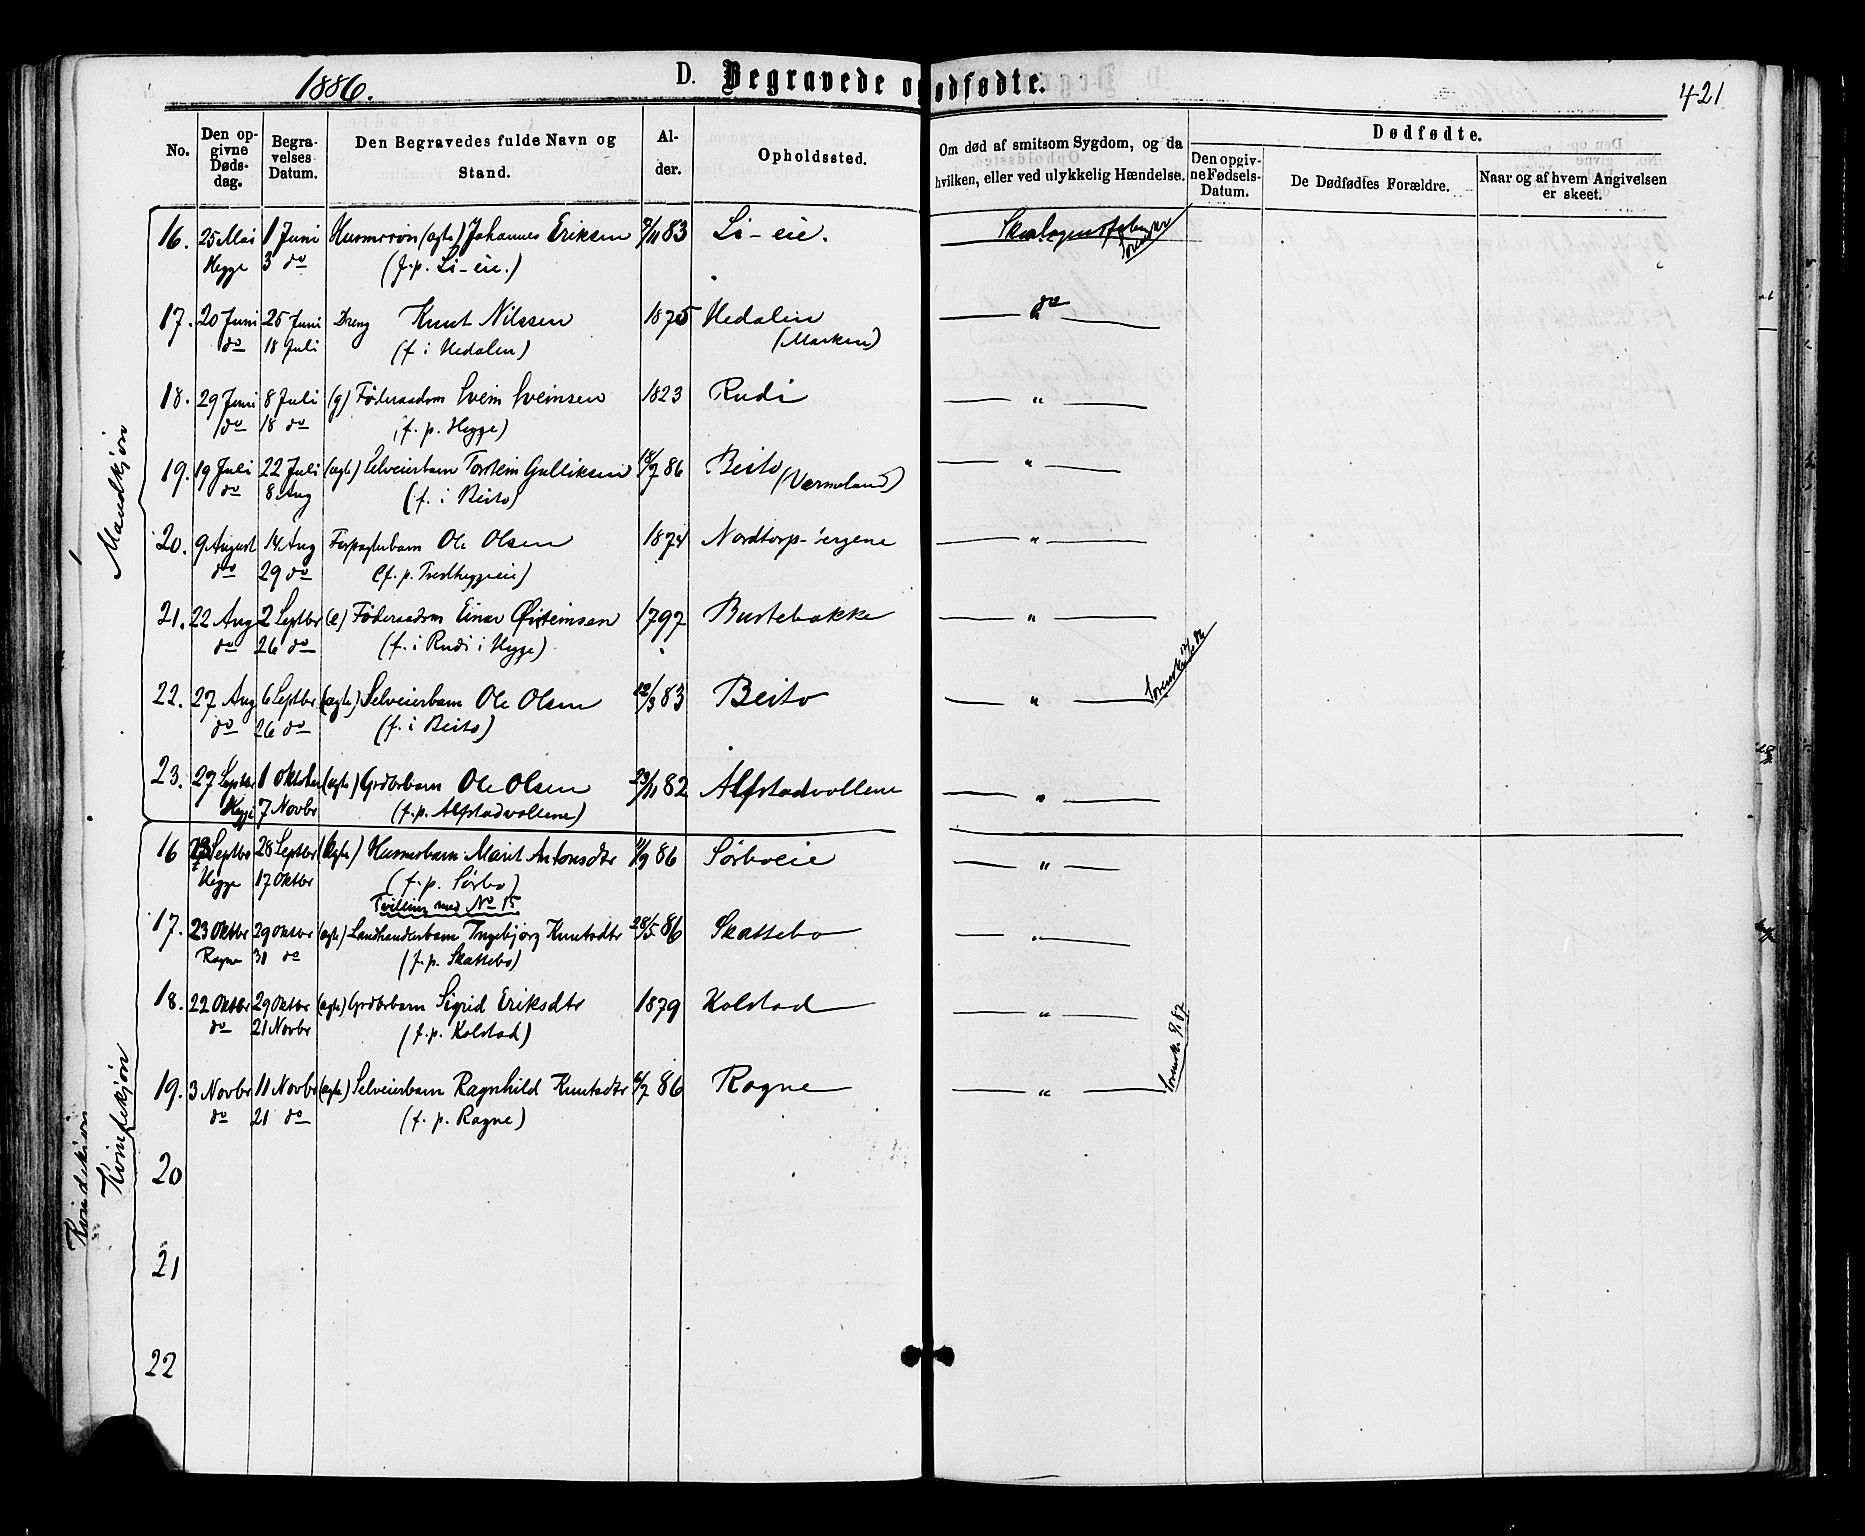 1886.
D. Begravede og Dødfødte.
421
No.
Den opgivne Dødsdag.
Begravelses Datum.
Den Begravedes fulde Navn og Stand.
Alder.
Opholdssted.
Om død af smitsom Sygdom, og da hvilken, eller ved ulykkelig Hændelse.
Dødfødte.
Den opgivne Fødsels-Datum.
De Dødfødtes Forældre.
Naar og af hvem Angivelsen er skeet.
Mandkjøn
16. 25 Mai 1 Juni (ægte) Johannes Eriksen 83 Li-eie.
Hegge 3 do (f.p. Li-eie.)
17. 20 Juni 25 Juni Dreng Knut Nilssen 1875 Hedalen do
do 18 Juli (f i Hedalen) (Marken)
18. 29 Juni 8 Juli (g) Føderaadsm Svein Sveinsen 1823 Rudi "
do 18 do (f. p. Hegge)
19. 19 Juli 22 Juli (ægte) Selveierbarn Torstein Gulliksen 86 Beito "
do 8 Aug (f. i Beito) (Vermeland)
20. 9 August 14 Aug Ole Olsen 1874 "
do 29 do
21. 22 Aug 2 Septbr (e) Føderaadsm Einar Øisteinsen 1797 Burtebakke "
do 26 do (f. i Rudi i Hegge)
22. 27 Aug 6 Septbr (ægte) Selveierbarn Ole Olsen 22/3 83 Beito "
do 26 do (f. i Beito)
23. 27 Septbr 1 Oktober (ægte) Grdbrbarn Ole Olsen 23/11 82 Alfstadvollene "
Hegge 7 Novbr (f. p. Alfstadvollene)
Kvindekjøn
Kvindekjøn
16 Septbr 28 Septbr (ægte) Husmbarn Marit Antonsdtr 86 Sørboeie "
Hegge 17 Oktbr (f. p. Sørbo)
Tvilling med No 15
17. 23 Oktbr 29 Oktbr (ægte) Landhandlerbarn Ingebjørg Knutsdtr 28/5 86 Skattebo "
Rogne 31 do (f. p. Skattebo)
18. 22 Oktbr 29 Oktbr (ægte) Grdbrbarn Sigrid Eriksdtr 1879 Kolstad "
do 21 Novbr (f. p. Kolstad)
19. 3 Novbr 11 Novbr (ægte) Selveierbarn Ragnhild Knutsdtr 86 Rogne "
do 21 do (f. p. Rogne)
20
21
22